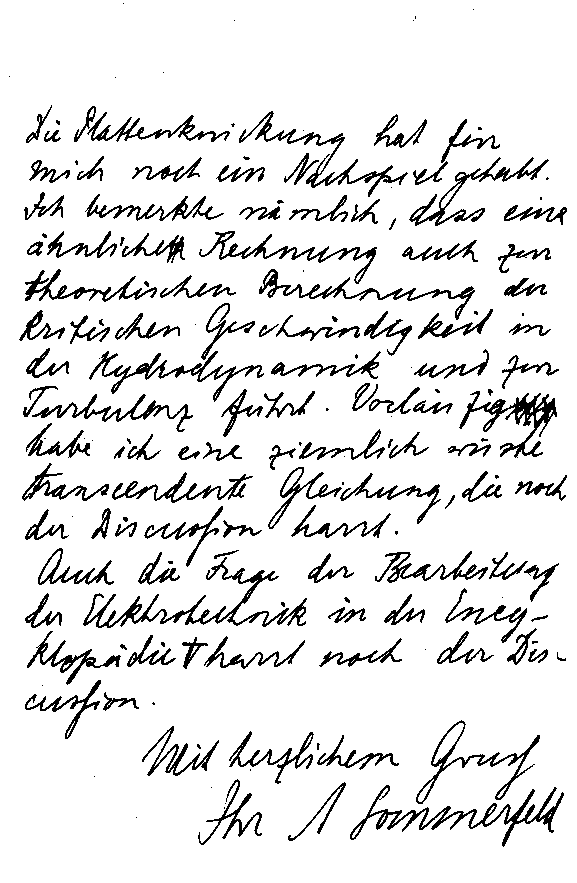 Die Plattenknickung hat für
mich noch ein Nachspiel gehabt.
Ich bemerkte nämlich, dass eine
ähnliche Rechnung auch zur
theoretischen Berechnung der
kritischen Geschwindigkeit in
der Hydrodynamik und zur
Turbulenz führt. Vorläufig
habe ich eine ziemlich wüste
transcendente Gleichung, die noch
der Discussion harrt.
Auch die Frage der Bearbeitung
der Elektrotechnik in der Ency-
klopädie harrt noch der Dis-
cussion.
Mit herzlichem Gruß
Ihr A Sommerfeld